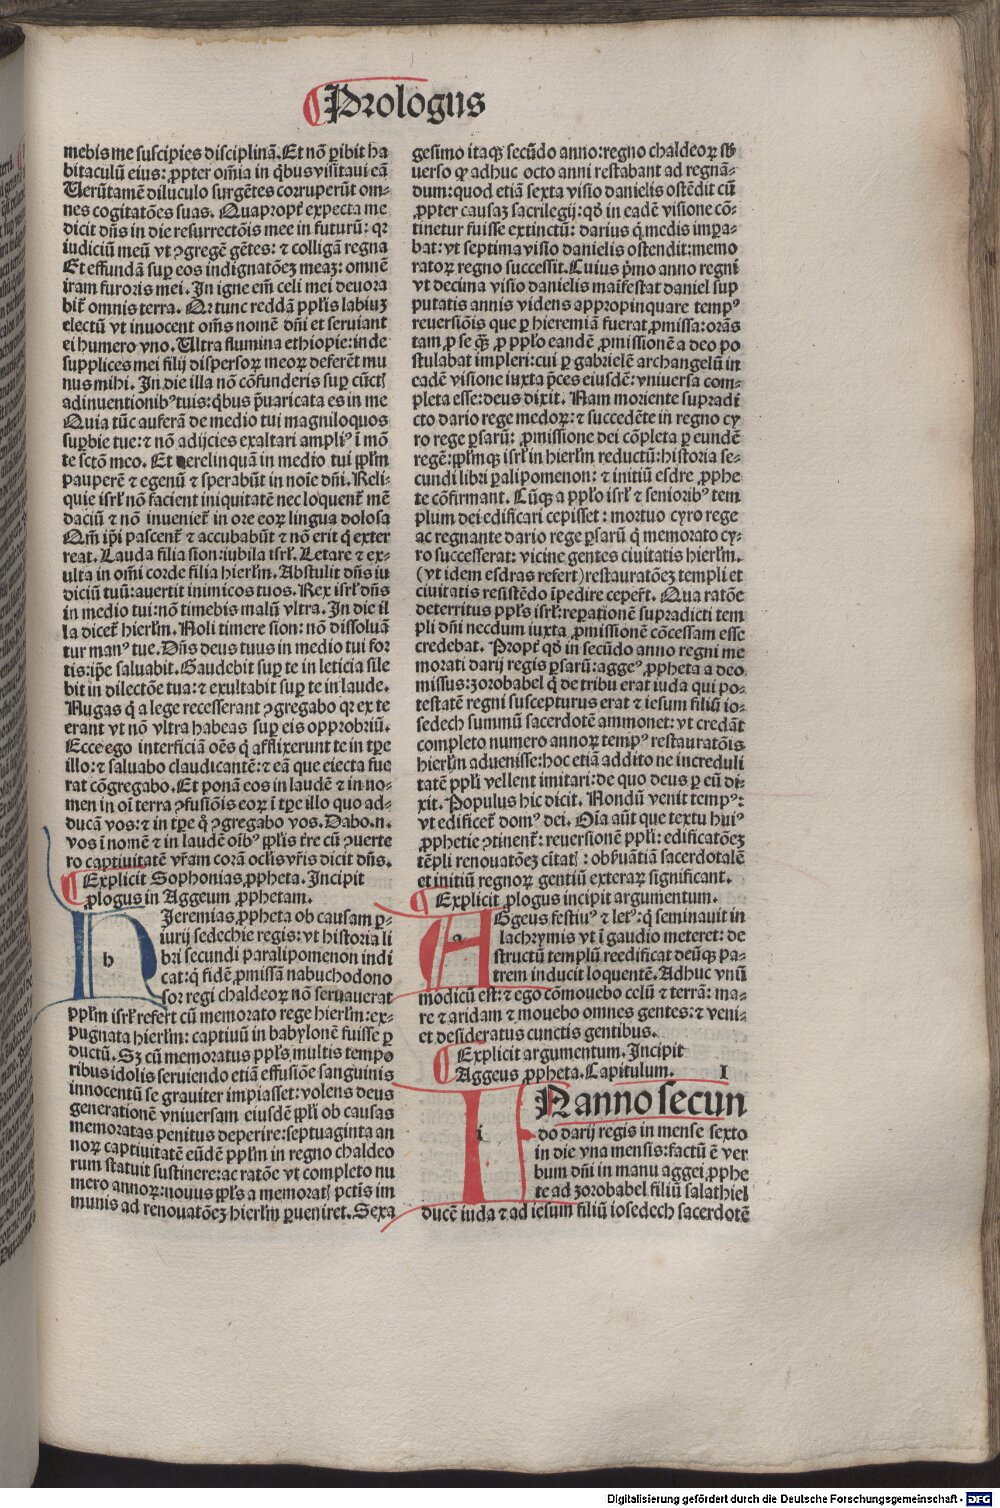 Prologus
mebis me suscipies disciplinā. Et nō ꝑibit ha
bitaculū eius: ꝓpter om̄ia in qͥbus visitaui eā
Uerūtamē diluculo surgētes corruperūt om-
nes cogitatōes suas. Quaproptʼ expecta me
dicit dn̄s in die resurrectōis mee in futurū: qꝛ
iudiciū meū vt ꝯgregē gētes: ⁊ colligā regna
Et effundā suꝑ eos indignatōeꝫ meaꝫ: omnē
iram furoris mei. In igne em̄ celi mei deuora
bitʼ omnis terra. Qꝛ tunc reddā ppl̓is labiuꝫ
electū vt inuocent om̄s nomē dn̄i et seruiant
ei humero vno. Ultra flumina ethiopie: inde
supplices mei filij dispersoꝝ meoꝝ deferēt mu
nus mihi. In die illa nō cōfunderis suꝑ cūctꝭ
adinuentionibꝰ tuis: qͥbus p̄uaricata es in me
Quia tūc auferā de medio tui magniloquos
suꝑbie tue: ⁊ nō adijcies exaltari ampliꝰ ī mō
te sctō meo. Et derelinquā in medio tui ppl̓m
pauperē ⁊ egenū ⁊ sperabūt in noīe dn̄i. Reli-
quie isrl̓ nō facient iniquitatē nec loquentʼ mē
daciū ⁊ nō inuenietʼ in ore eoꝝ lingua dolosa
Qm̄ ip̄i pascentʼ ⁊ accubabūt ⁊ nō erit qͥ exter
reat. Lauda filia sion: iubila isrl̓. Letare ⁊ ex-
ulta in om̄i corde filia hierl̓m. Abstulit dn̄s iu
diciū tuū: auertit inimicos tuos. Rex isrl̓ dn̄s
in medio tui: nō timebis malū vltra. In die il
la dicetʼ hierl̓m. Noli timere sion: nō dissoluā
tur manꝰ tue. Dn̄s deus tuus in medio tui for
tis: ip̄e saluabit. Gaudebit suꝑ te in leticia sile
bit in dilectōe tua: ⁊ exultabit suꝑ te in laude.
Nugas qͥ a lege recesserant ꝯgregabo qꝛ ex te
erant vt nō vltra habeas suꝑ eis opprobriū.
Ecce ego interficiā oēs qͥ afflixerunt te in tp̄e
illo: ⁊ saluabo claudicantē: ⁊ eā que eiecta fue
rat cōgregabo. Et ponā eos in laudē ⁊ in no-
men in oī terra ꝯfusiōis eoꝝ ī tp̄e illo quo ad-
ducā vos: ⁊ in tp̄e qͦ ꝯgregabo vos. Dabo.n.
vos ī nomē ⁊ in laudē oībꝰ ppl̓is tʼre cū ꝯuerte
ro captiuitatē vr̄am corā ocl̓is vr̄is dicit dn̄s.
Explicit Sophonias ꝓpheta. Incipit
ꝓlogus in Aggeum ꝓphetam.
h
Jeremias ꝓpheta ob causam ꝑ-
iurij sedechie regis: vt historia li
bri secundi paralipomenon indi
cat: qͥ fidē ꝓmissā nabuchodono
sor regi chaldeoꝝ nō seruauerat
ppl̓m isrl̓ refert cū memorato rege hierl̓m: ex-
pugnata hierl̓m: captiuū in babylonē fuisse ꝑ
ductū. Sꝫ cū memoratus ppl̓s multis tempo
ribus idolis seruiendo etiā effusiōe sanguinis
innocentū se grauiter impiasset: volens deus
generationē vniuersam eiusdē ppl̓i ob causas
memoratas penitus deperire: septuaginta an
noꝝ captiuitatē eūdē ppl̓m in regno chaldeo
rum statuit sustinere: ac ratōe vt completo nu
mero annoꝝ: nouus ppl̓s a memoratꝭ pctīs im
munis ad renouatōeꝫ hierl̓m ꝑueniret. Sexa
gesimo itaqꝫ secūdo anno: regno chaldeoꝝ sb̓
uerso qꝛ adhuc octo anni restabant ad regnā-
dum: quod etiā sexta visio danielis ostēdit cū
ꝓpter causaꝫ sacrilegij: qͦd in eadē visione cō-
tinetur fuisse extinctū: darius qͥ medis imꝑa-
bat: vt septima visio danielis ostendit: memo
ratoꝝ regno successit. Cuius p̓mo anno regni
vt decima visio danielis maīfestat daniel sup
putatis annis videns appropinquare tempꝰ
reuersiōis que ꝑ hieremiā fuerat ꝓmissa: orās
tam ꝓ se qꝫ̄ ꝓ pplo̓ eandē ꝓmissionē a deo po
stulabat impleri: cui ꝑ gabrielē archangelū in
eadē visione iuxta p̄ces eiusdē: vniuersa com-
pleta esse: deus dixit. Nam moriente supradi
cto dario rege medoꝝ: ⁊ succedēte in regno cy
ro rege ꝑsarū: ꝓmissione dei cōpleta ꝑ eundē
regē: ppl̓mqꝫ isrl̓ in hierl̓m reductū: historia se-
cundi libri ꝑalipomenon: ⁊ initiū esdre ꝓphe
te cōfirmant. Cūqꝫ a pplo̓ isrl̓ ⁊ senioribꝰ tem
plum dei edificari cepisset: mortuo cyro rege
ac regnante dario rege ꝑsarū qͥ memorato cy-
ro successerat: vicine gentes ciuitatis hierl̓m.
(vt idem esdras refert) restauratōeꝫ templi et
ciuitatis resistēdo īpedire ceperʼt. Qua ratōe
deterritus ppl̓s isrl̓: reꝑationē supradicti tem
pli dn̄i necdum iuxta ꝓmissionē cōcessam esse
credebat. Proptʼ qͦd in secūdo anno regni me
morati darij regis ꝑsarū: aggeꝰ ꝓpheta a deo
missus: zorobabel qͥ de tribu erat iuda qui po-
testatē regni suscepturus erat ⁊ iesum filiū io-
sedech summū sacerdotē ammonet: vt credāt
completo numero annoꝝ tempꝰ restauratōis
hierl̓m aduenisse: hoc etiā addito ne increduli
tatē ppl̓i vellent imitari: de quo deus ꝑ eū di-
xit. Populus hic dicit. Nondū venit tempꝰ:
vt edificetʼ domꝰ dei. Oīa aūt que textu huiꝰ
ꝓphetie ꝯtinentʼ: reuersionē ppl̓i: edificatōeꝫ
tēpli renouatōeꝫ cītatꝭ: obʼuātiā sacerdotalē
et initiū regnoꝝ gentiū exteraꝝ significant.
Explicit ꝓlogus incipit argumentum.
a
AGgeus festiuꝰ ⁊ letꝰ: qͥ seminauit in
lachrymis vt ī gaudio meteret: de
structū templū reedificat deūqꝫ pa-
trem inducit loquentē. Adhuc vnū
modicū est: ⁊ ego cōmouebo celū ⁊ terrā: ma-
re ⁊ aridam ⁊ mouebo omnes gentes: ⁊ veni-
et desideratus cunctis gentibus.
Explicit argumentum. Incipit
Aggeus ꝓpheta. Capitulum. I
i
IN anno secun
do darij regis in mense sexto
in die vna mensis: factū ē ver
bum dn̄i in manu aggei ꝓphe
te ad zorobabel filiū salathiel
ducē iuda ⁊ ad iesum filiū iosedech sacerdotē
Digitalisierung gefördert durch die Deutsche Forschungsgemeinschaft - DFG